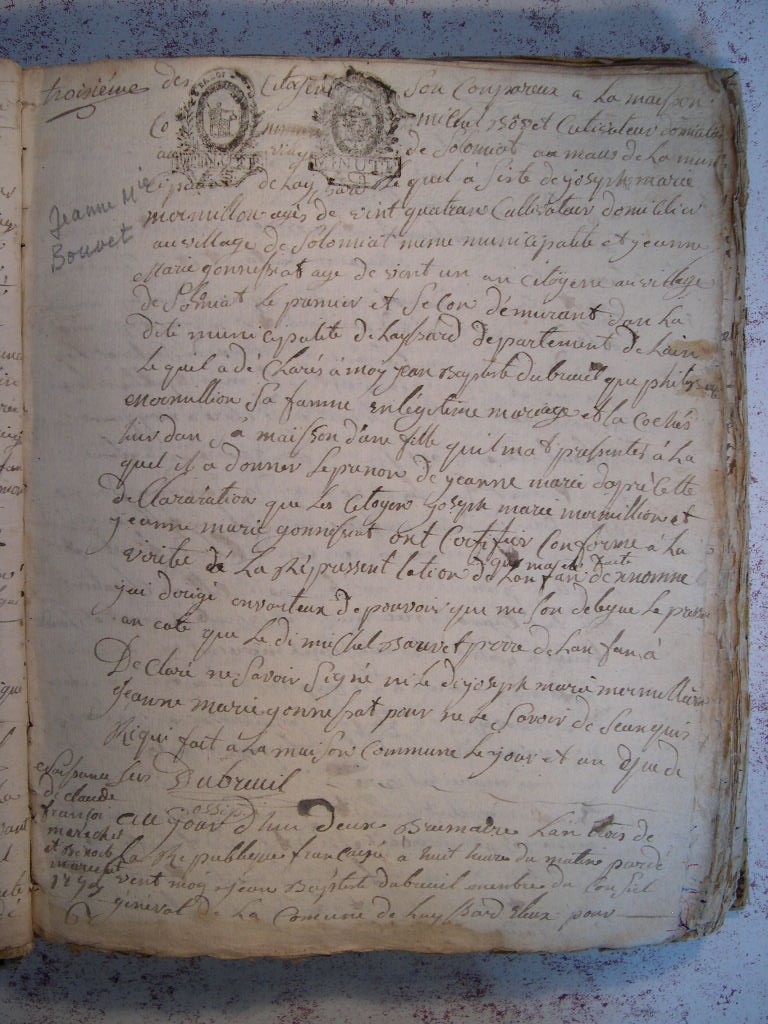 troisiéme des Cita son Conpareux a La maison
Co michel Bovet Cultivateur
au vilag de Solomiat au maus de La muni
cipalite de Lay Sard Le quel a siste de joseph marie
Jeanne Mie
Bouvet
mermillon agés de vint quatran Cultivateur domicilier
au village de Solomiat meme municipalite et jeanne
Marie gonnessiat age de vent un an citoyene au village
de Solomiat Le premier et Secon démurant dan La
dite municipalite de LaySard departement de Lain
Le quil à dé Clarés à moy jean Baptiste dubreuil que
mermillion Sa famme en Légitime mariage et la Cochés
hier dan sà maison dune fille quil mat pressentés à La
quel il a donner Leprenon de jeanne marie dapprà Cette
de Clararation que Les Citoyen joseph marie mermillion et
jeanne marie gonnessiat ont Certifier Conforme à La
verite dé La Répressent lation de Lanfan denomme
qui majet faite
jai dirigé en vorteux de pouvoir que me son delegue Le presen
an cate que Le di michel Bouvet perre de Lan fan à
Declaré ne Savoir Signé ni Le di joseph marie mermillion
jeanne marie gonnessiat pour ne Le Savoir de Seanquis
Ri qui fait a La maison Commune Le jour et an que de
sus Dubreuil
de claude
françoi
marechet
et Benoit
marechet
1794
au jour dhui deux Brumaire Lan trois de
La Republique françaisse a huit heure du matin pardé
vent moy jean Baptiste dubreuil membre du Conseil
général de La Comune de LaySSard Elux pour